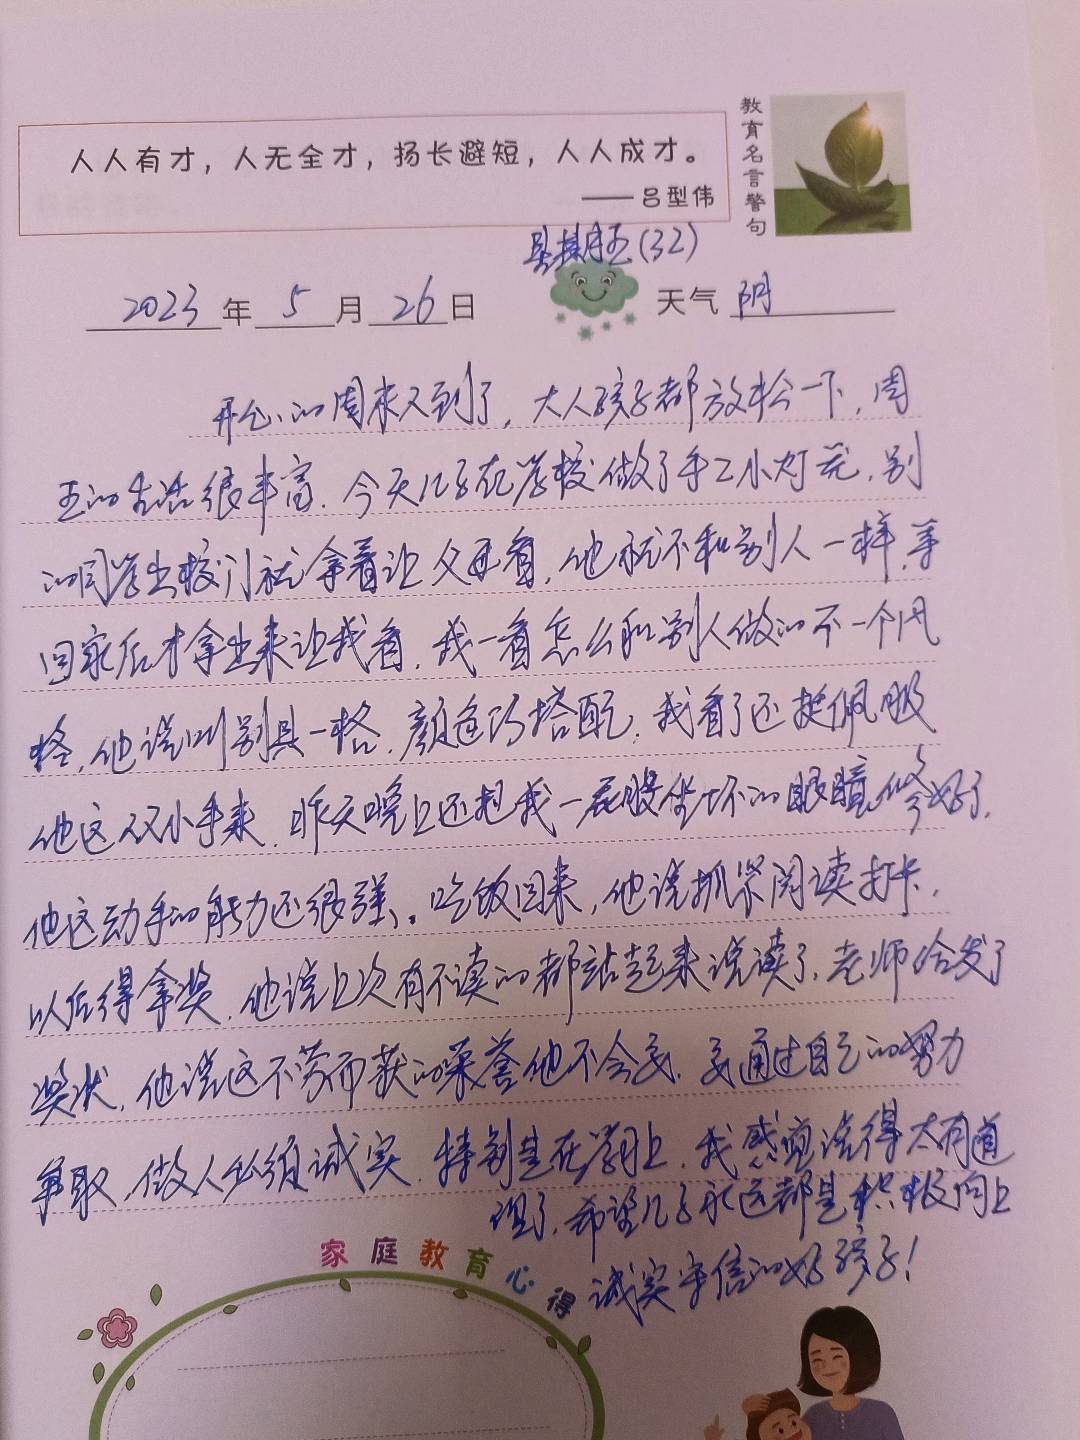 人人有才，人无全才，扬长避短，人人成才。
——吕型伟
教育名言警句
星期五(32)
2023年5月26日 天气 阴
开心的周末又到了，大人孩子都放松一下，周
五的生活很丰富．今天儿子在学校做了手工小灯笼，别
的同学出校门就拿着让父母看，他就不和别人一样，等
回家后才拿出来让我看．我一看怎么和别人做的不一个风
格，他说叫别具一格，颜色巧搭配，我看了还挺佩服
他这双小手来．昨天晚上还把我一屁股坐坏的眼镜修好了，
他这动手的能力还很强。吃饭回来，他说抓紧阅读打卡，
以后得拿奖．他说上次有不读的都站起来说读了，老师给发了
奖状，他说这不劳而获的荣誉他不会要．要通过自己的努力
争取，做人必须诚实．特别是在学习上．我感觉说得太有道
理了．希望儿子永远都是积极向上
诚实守信的好孩子！
家庭教育心得